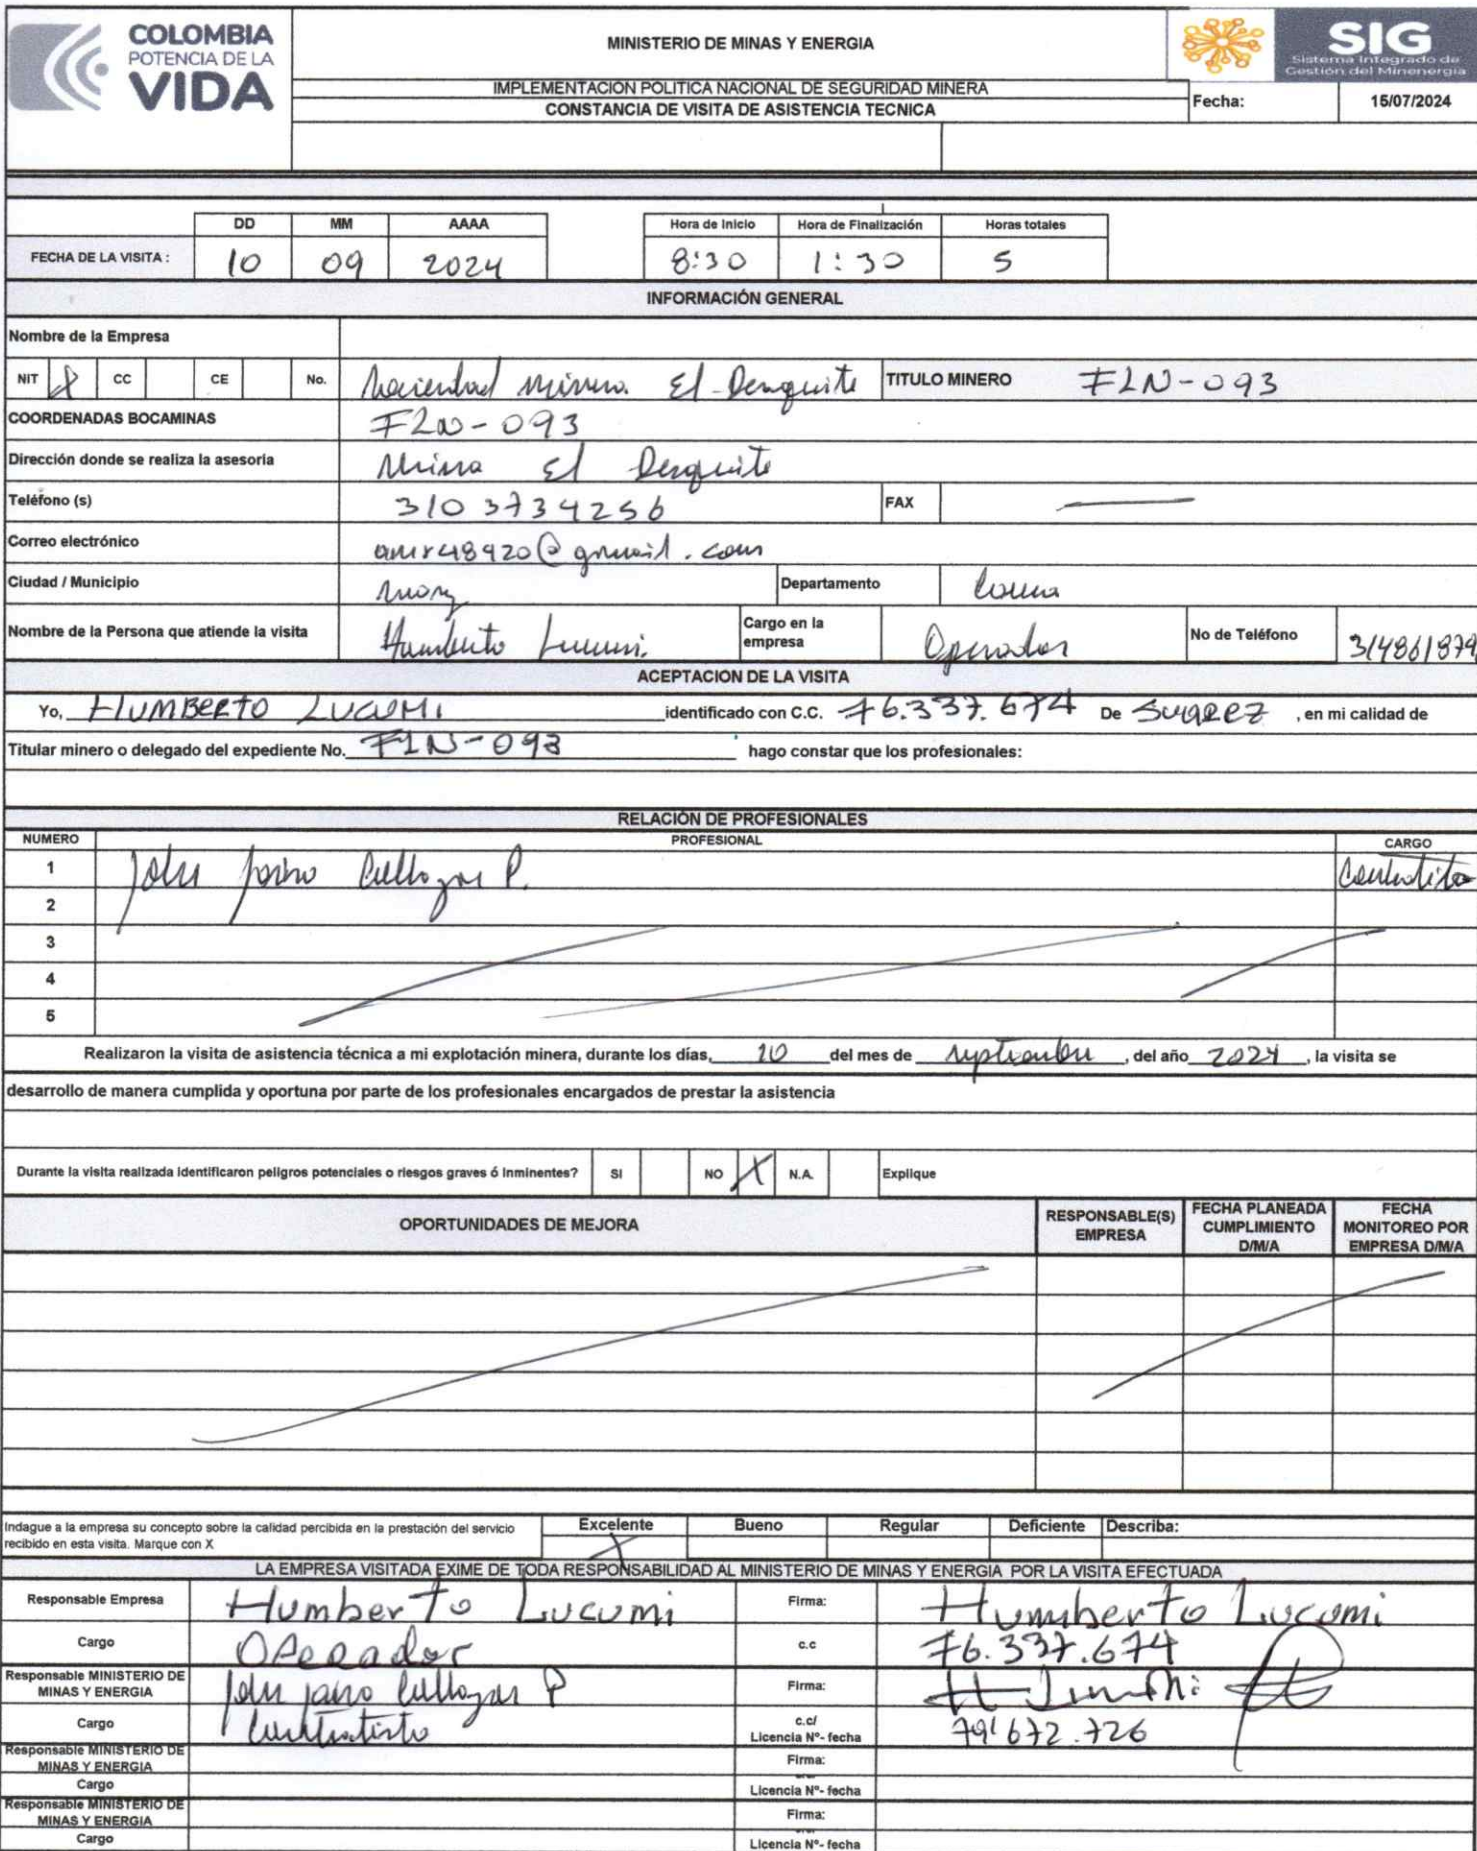 COLOMBIA
POTENCIA DE LA
VIDA
MINISTERIO DE MINAS Y ENERGIA
SIG
Sistema Integrado de
Gestión del Minenergía
IMPLEMENTACION POLITICA NACIONAL DE SEGURIDAD MINERA
CONSTANCIA DE VISITA DE ASISTENCIA TECNICA
Fecha: 15/07/2024
DD MM AAAA Hora de Inicio Hora de Finalización Horas totales
FECHA DE LA VISITA : 10 09 2024 8:30 1:30 5
INFORMACIÓN GENERAL
Nombre de la Empresa
NIT CC CE No. El Desquite TITULO MINERO FLN-093
COORDENADAS BOCAMINAS FLN-093
Dirección donde se realiza la asesoria Mina El Desquite
Teléfono (s) 3103734256 FAX
Correo electrónico @gmail.com
Ciudad / Municipio Departamento Cauca
Nombre de la Persona que atiende la visita Humberto Lucumi. Cargo en la empresa Operador No de Teléfono 3148618794
ACEPTACION DE LA VISITA
Yo, HUMBERTO LUCUMI identificado con C.C. 76.337.674 De Suarez , en mi calidad de
Titular minero o delegado del expediente No. FLN-093 hago constar que los profesionales:
RELACIÓN DE PROFESIONALES
NUMERO PROFESIONAL CARGO
1 John Jairo P. Contratista
2
3
4
5
Realizaron la visita de asistencia técnica a mi explotación minera, durante los días, 10 del mes de septiembre , del año 2024 , la visita se
desarrollo de manera cumplida y oportuna por parte de los profesionales encargados de prestar la asistencia
Durante la visita realizada identificaron peligros potenciales o riesgos graves ó inminentes? SI NO X N.A. Explique
OPORTUNIDADES DE MEJORA RESPONSABLE(S) EMPRESA FECHA PLANEADA CUMPLIMIENTO D/M/A FECHA MONITOREO POR EMPRESA D/M/A
Indague a la empresa su concepto sobre la calidad percibida en la prestación del servicio Excelente Bueno Regular Deficiente Describa:
recibido en esta visita. Marque con X X
LA EMPRESA VISITADA EXIME DE TODA RESPONSABILIDAD AL MINISTERIO DE MINAS Y ENERGIA POR LA VISITA EFECTUADA
Responsable Empresa Humberto Lucumi Firma: Humberto Lucumi
Cargo Operador c.c 76.337.674
Responsable MINISTERIO DE MINAS Y ENERGIA John Jairo P Firma:
Cargo Contratista c.c/ Licencia Nº- fecha 79'672.726
Responsable MINISTERIO DE MINAS Y ENERGIA Firma:
Cargo Licencia Nº- fecha
Responsable MINISTERIO DE MINAS Y ENERGIA Firma:
Cargo Licencia Nº- fecha